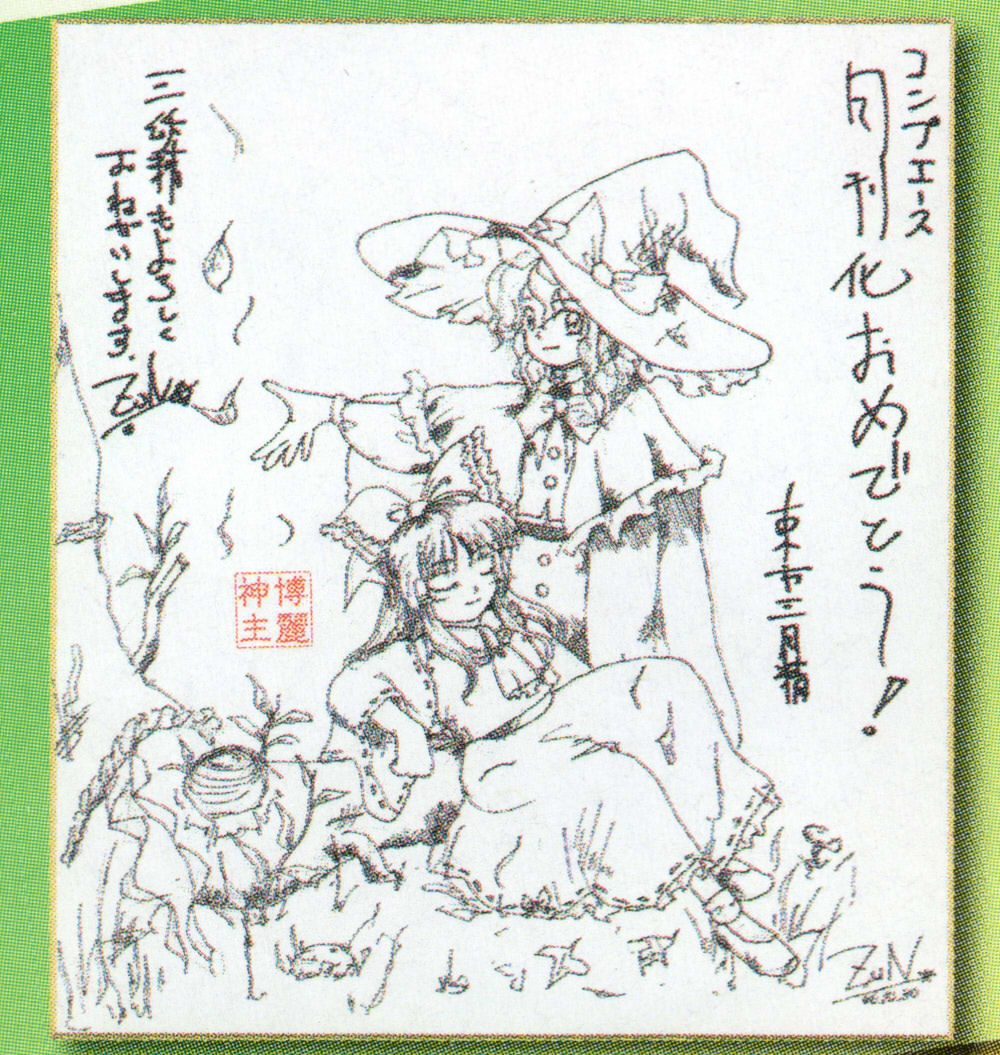 コンプエース
旬刊化おめでとう!
東方三月精
三妖精もよろしく
おねがいします。
ZUN
博麗
神主
ZUN